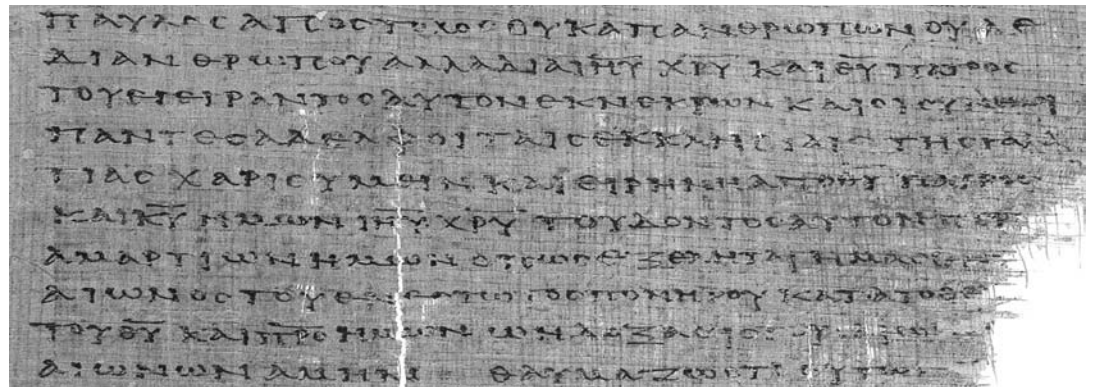 ΠΑΥΛΟϹ ΑΠΟϹΤΟΛΟϹ ΟΥΚ ΑΠ ΑΝΘΡΩΠΩΝ ΟΥΔΕ
ΔΙ ΑΝΘΡΩΠΟΥ ΑΛΛΑ ΔΙΑ ΙΗΥ ΧΡΥ ΚΑΙ ΘΥ ΠΑΤΡΟϹ
ΤΟΥ ΕΓΕΙΡΑΝΤΟϹ ΑΥΤΟΝ ΕΚ ΝΕΚΡΩΝ ΚΑΙ ΟΙ
ΠΑΝΤΕϹ ΑΔΕΛΦΟΙ ΤΑΙϹ ΕΚΚΛΗϹΙΑΙϹ ΤΗϹ ΓΑΛΑ
ΤΙΑϹ ΧΑΡΙϹ ΥΜΕΙΝ ΚΑΙ ΕΙΡΗΝΗ ΑΠΟ ΘΥ ΠΑΤΡΟϹ
ΚΑΙ ΚΥ ΗΜΩΝ ΙΗΥ ΧΡΥ ΤΟΥ ΔΟΝΤΟϹ ΑΥΤΟΝ ΠΕΡ
ΑΜΑΡΤΙΩΝ ΗΜΩΝ ΟΠΩϹ ΕΞΕΛΗΤΑΙ ΗΜΑϹ
ΑΙΩΝΟϹ ΤΟΥ ΕΝΕϹΤΩΤΟϹ ΠΟΝΗΡΟΥ ΚΑΤΑ ΤΟ ΘΕ
ΤΟΥ ΘΥ ΚΑΙ ΠΡϹ ΗΜΩΝ
ΑΙΩΝΩΝ ΑΜΗΝ ΘΑΥΜΑΖΩ ΟΤΙ